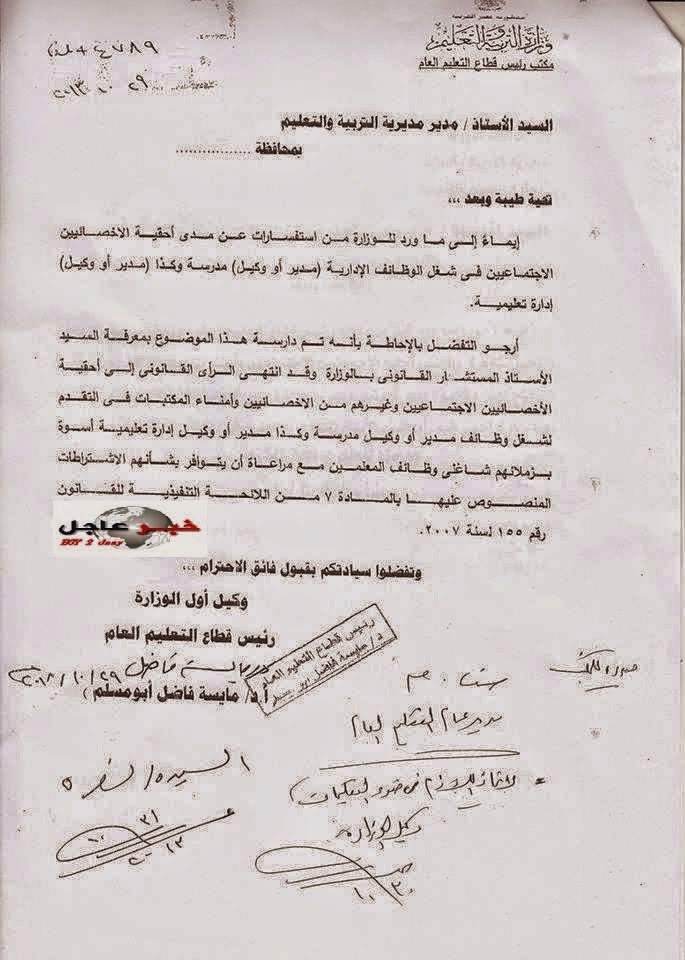 وزارة التربية والتعليم
مكتب رئيس قطاع التعليم العام
٤٧٨٩
٢٠١٣ ١٠ ٢٩
السيد الأستاذ / مدير مديرية التربية والتعليم
بمحافظة ..................
تحية طيبة وبعد ،،،
إيماءً إلى ما ورد للوزارة من استفسارات عن مدى أحقية الاخصائيين
الاجتماعيين فى شغل الوظائف الإدارية (مدير أو وكيل) مدرسة وكذا (مدير أو وكيل)
إدارة تعليمية.
أرجو التفضل بالإحاطة بأنه تم دارسة هذا الموضوع بمعرفة السيد
الأستاذ المستشار القانونى بالوزارة وقد انتهى الرأى القانونى إلى أحقية
الأخصائيين الاجتماعيين وغيرهم من الاخصائيين وأمناء المكتبات فى التقدم
لشغل وظائف مدير أو وكيل مدرسة وكذا مدير أو وكيل إدارة تعليمية أسوة
بزملائهم شاغلى وظائف المعلمين مع مراعاة أن يتوافر بشأنهم الاشتراطات
المنصوص عليها بالمادة ٧ من اللائحة التنفيذية للقانون
رقم ١٥٥ لسنة ٢٠٠٧.
خبر عاجل
EGY 2 day
وتفضلوا سيادتكم بقبول فائق الاحترام ،،،
وكيل أول الوزارة
رئيس قطاع التعليم العام
أ.د/ مايسة فاضل أبو مسلم )
رئيس قطاع التعليم العام
مدير عام التعليم العام
وكيل الوزارة
٣١
١٠
٢٠١٣
٣٠
١٠